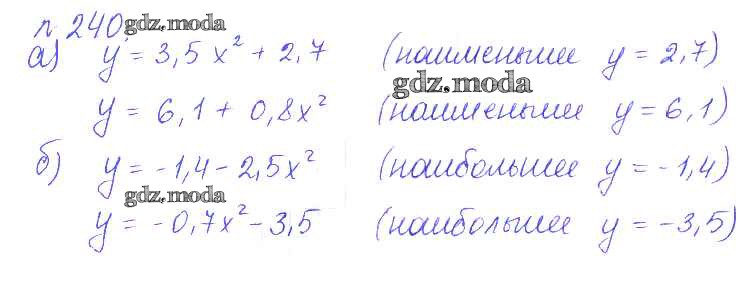 п. 240 gdz.moda
а) y = 3,5x² + 2,7 (наименьшее y = 2,7)
gdz.moda
y = 6,1 + 0,8x² (наименьшее y = 6,1)
б) y = -1,4 - 2,5x² (наибольшее y = -1,4)
gdz.moda
y = -0,7x² - 3,5 (наибольшее y = -3,5)